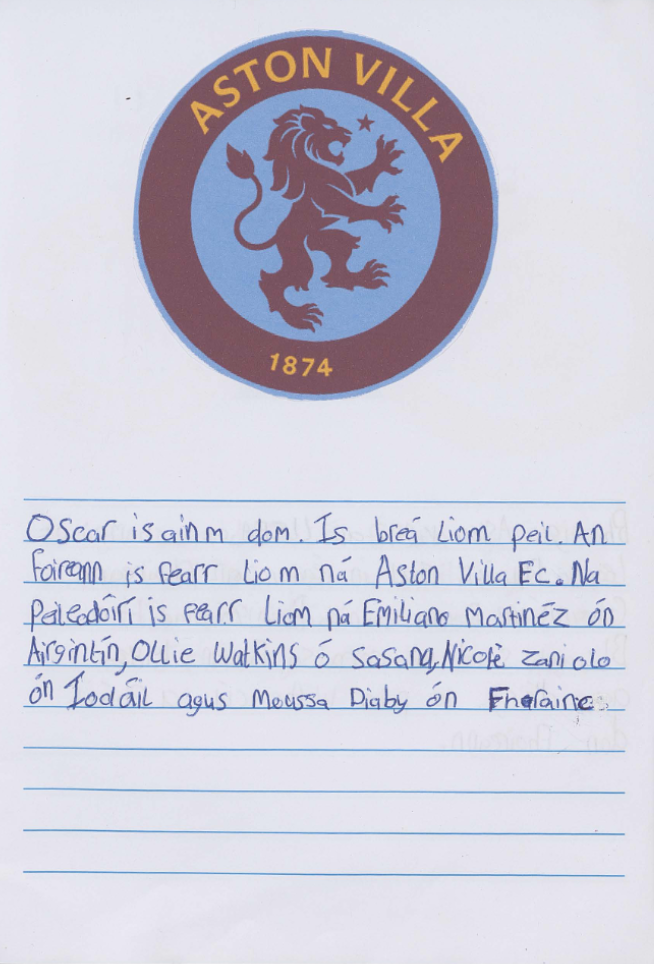 ASTON VILLA
1874
Oscar is ainm dom. Is breá Liom peil. An
foireann is fearr Liom ná Aston Villa F.c. Na
peileadóirí is fearr Liom ná Emiliano Martinéz ón
Airgintín, Ollie Watkins ó Sasana, Nicolé Zaniolo
ón Iodáil agus Moussa Diaby ón Fhrainc